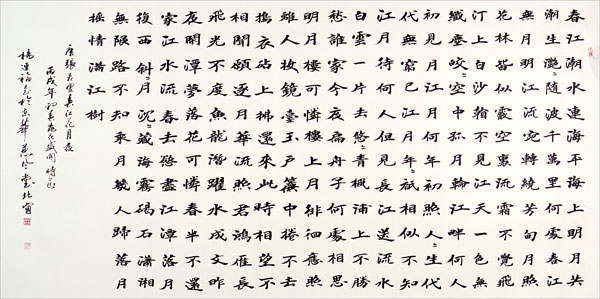 春江潮水連海平海上明月共
潮生灩〻隨波千萬里何處春江
無月明江流宛轉繞芳甸月照
花林皆似霰空裏流霜不覺飛
汀上白沙看不見江天一色無
纖塵皎〻空中孤月輪江畔何人
初見月江月何年初照人〻生代
代無窮已江月年〻祇相似不知
江月待何人但見長江送流水
白雲一片去悠〻青楓浦上不勝
愁誰家今夜扁舟子何處相思
明月樓可憐樓上月徘徊應照
離人妝鏡臺玉戶簾中捲不去
擣衣砧上拂還來此時相望不
相聞願逐月華流照君鴻雁長
飛光不度魚龍潛躍水成文昨
夜閒潭夢落花可憐春半不還
家江水流春去欲盡江潭落月
復西斜月沉〻藏海霧碣石瀟湘
無限路不知乘月幾人歸落月
搖情滿江樹
唐張若虛春江花月夜
丙戌年初春